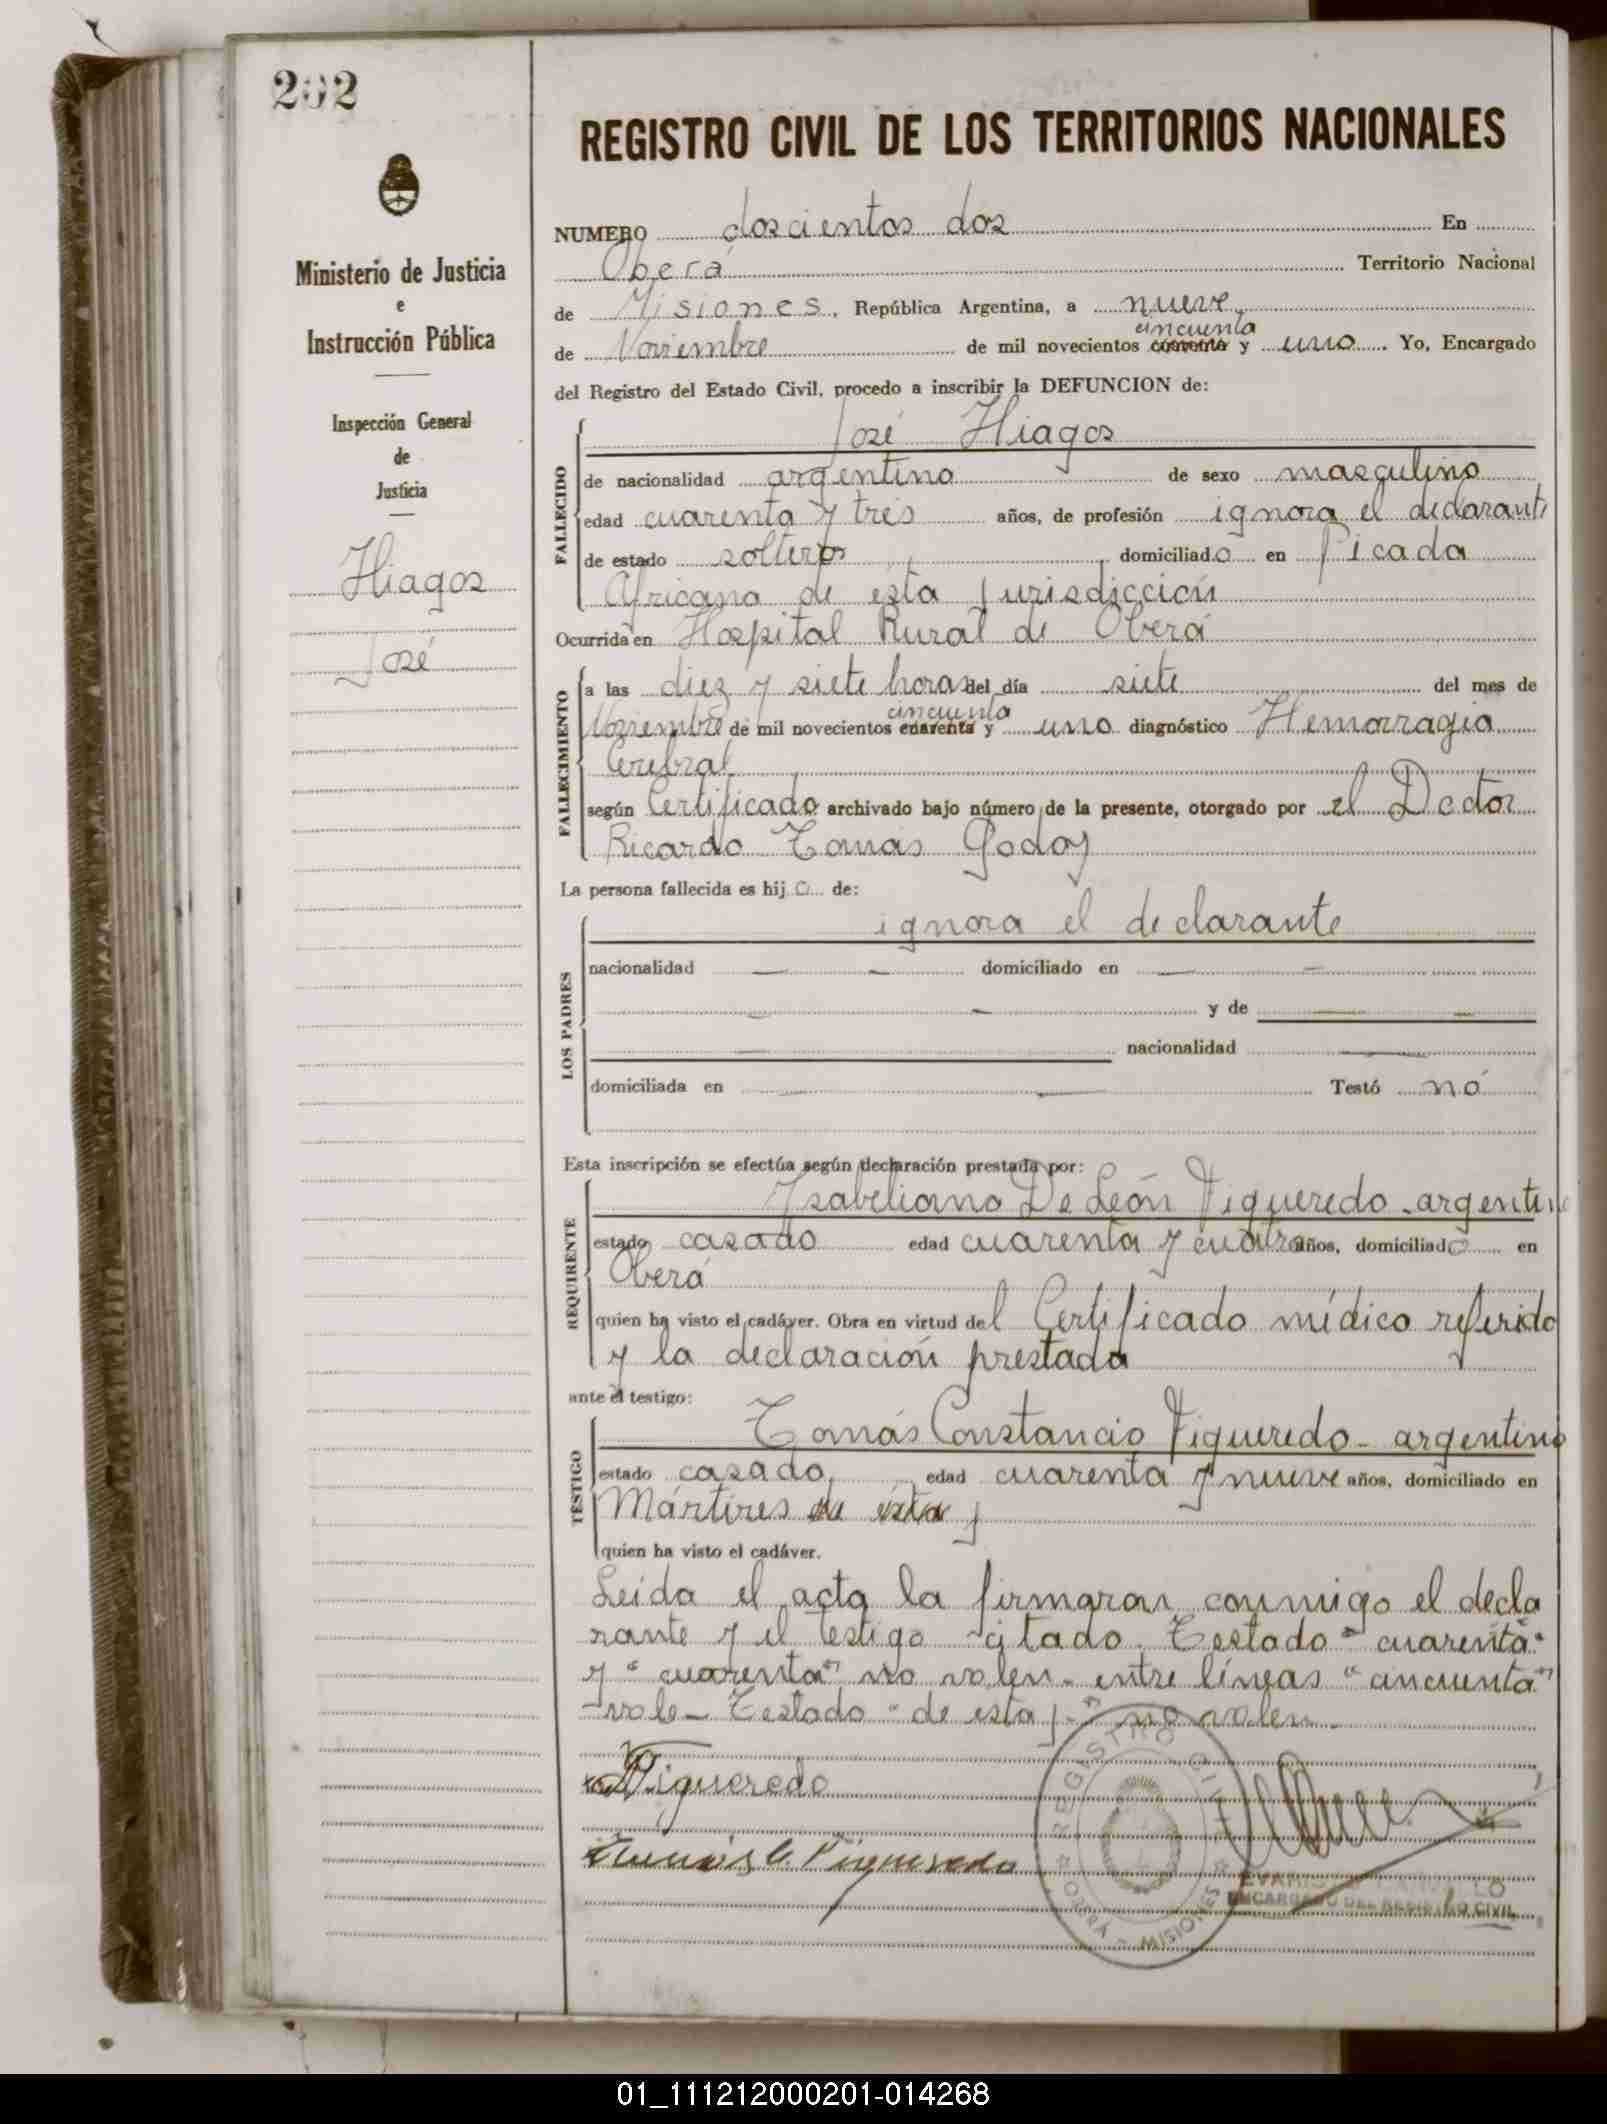 202
Ministerio de Justicia
e
Instrucción Pública
Inspección General
de
Justicia
Hiagos
José
REGISTRO CIVIL DE LOS TERRITORIOS NACIONALES
NUMERO doscientos dos En
Oberá Territorio Nacional
de Misiones, República Argentina, a nueve
cincuenta
de Noviembre de mil novecientos cuarenta y uno. Yo, Encargado
del Registro del Estado Civil, procedo a inscribir la DEFUNCION de:
José Hiagos
FALLECIDO
de nacionalidad argentino de sexo masculino
edad cuarenta y tres años, de profesión ignora el declarante
de estado soltero domiciliado en Picada
Africana de ésta jurisdicción
Ocurrida en Hospital Rural de Oberá
FALLECIMIENTO
a las diez y siete horas del día siete del mes de
cincuenta
Noviembre de mil novecientos cuarenta y uno diagnóstico Hemorragia
Cerebral
según Certificado archivado bajo número de la presente, otorgado por el Doctor
Ricardo Tomás Godoy
La persona fallecida es hijo de:
LOS PADRES
ignora el declarante
nacionalidad — — domiciliado en — —
— — y de — —
— nacionalidad —
domiciliada en — — Testó nó
Esta inscripción se efectúa según declaración prestada por:
REQUIRENTE
Ysabeliano De León Figueredo - argentino
estado casado edad cuarenta y cuatro años, domiciliado en
Oberá
quien ha visto el cadáver. Obra en virtud del Certificado médico referido
y la declaración prestada
ante el testigo:
TESTIGO
Tomás Constancio Figueredo - argentino
estado casado edad cuarenta y nueve años, domiciliado en
Mártires de ésta j
quien ha visto el cadáver.
Leida el acta la firmaron conmigo el decla
rante y el testigo citado. Testado "cuarenta"
y "cuarenta" no valen - entre líneas "cincuenta"
vale - Testado "de esta j-" no valen -
Figueredo
Tomás C. Figueredo
REGISTRO CIVIL
OBERÁ - MISIONES
ENCARGADO DEL REGISTRO CIVIL
01_111212000201-014268